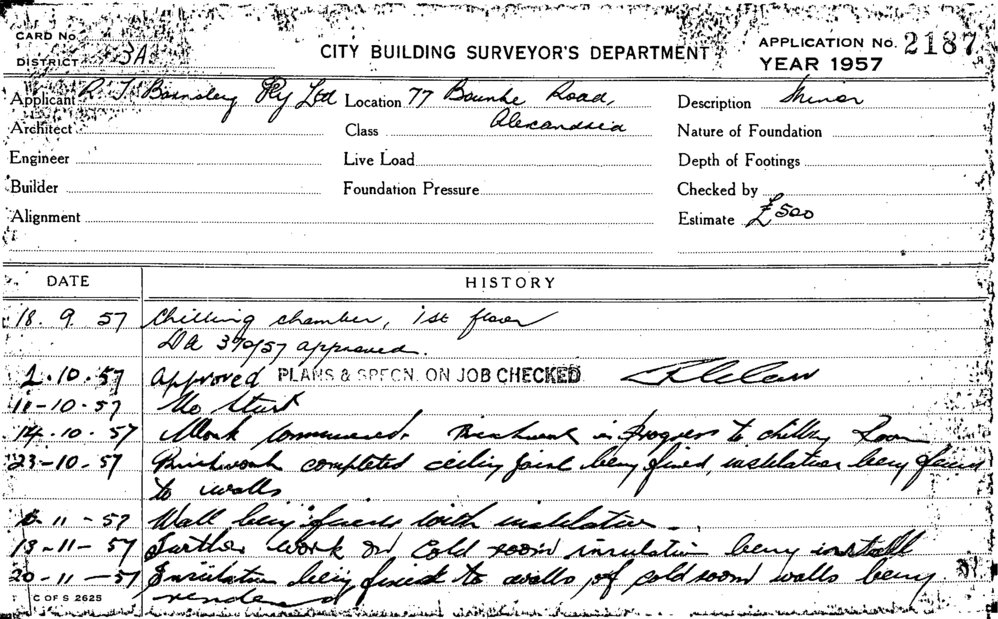 CARD No.
DISTRICT 3A
CITY BUILDING SURVEYOR'S DEPARTMENT
APPLICATION No. 2187
YEAR 1957
Applicant R. T. Barnsley Pty Ltd Location 77 Bourke Road, Description Minor
Architect Class Alexandria Nature of Foundation
Engineer Live Load Depth of Footings
Builder Foundation Pressure Checked by
Alignment Estimate £500
DATE HISTORY
18. 9. 57 Chilling chamber, 1st floor
DA 370/57 approved.
1.10.57 Approved PLANS & SPECN. ON JOB CHECKED
11-10-57 No Start
14.10.57 Work commenced. Brickwork in Progress to chilling Room
23-10-57 Brickwork completed ceiling joist being fixed, insulation being fixed
to walls
6-11-57 Wall being faced with insulation.
13-11-57 Further work on Cold room insulation being install
20-11-57 Insulation being fixed to walls of cold room walls being
rendered
C OF S 2625